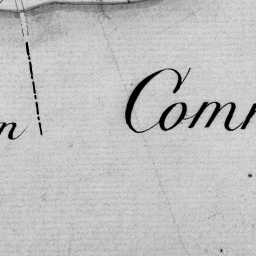 n Comm